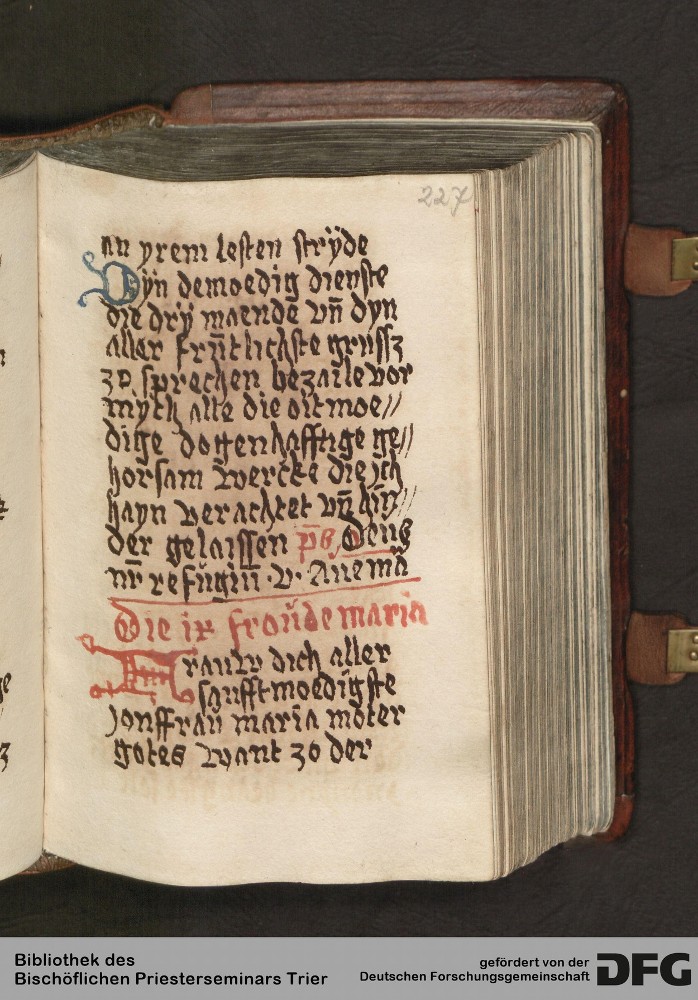 227
an yrem lesten strÿde
Dÿn demoedig dienste
die drÿ maende vn̄ dyn
aller frūtlichste grussz
zo sprechen bezaile vor
mych alle die oitmoe//
dige dogenhafftige ge//
horsam wercke die ich
hayn verachtet vn̄ hin//
der gelaissen ps̄ Deus
nr̄ refugiū · v · Aue ma
Die ix froude maria
Frauw dich aller
sanfftmoedigste
Jonffrau maria moter
gotes want zo der
Bibliothek des
Bischöflichen Priesterseminars Trier
gefördert von der
Deutschen Forschungsgemeinschaft
DFG